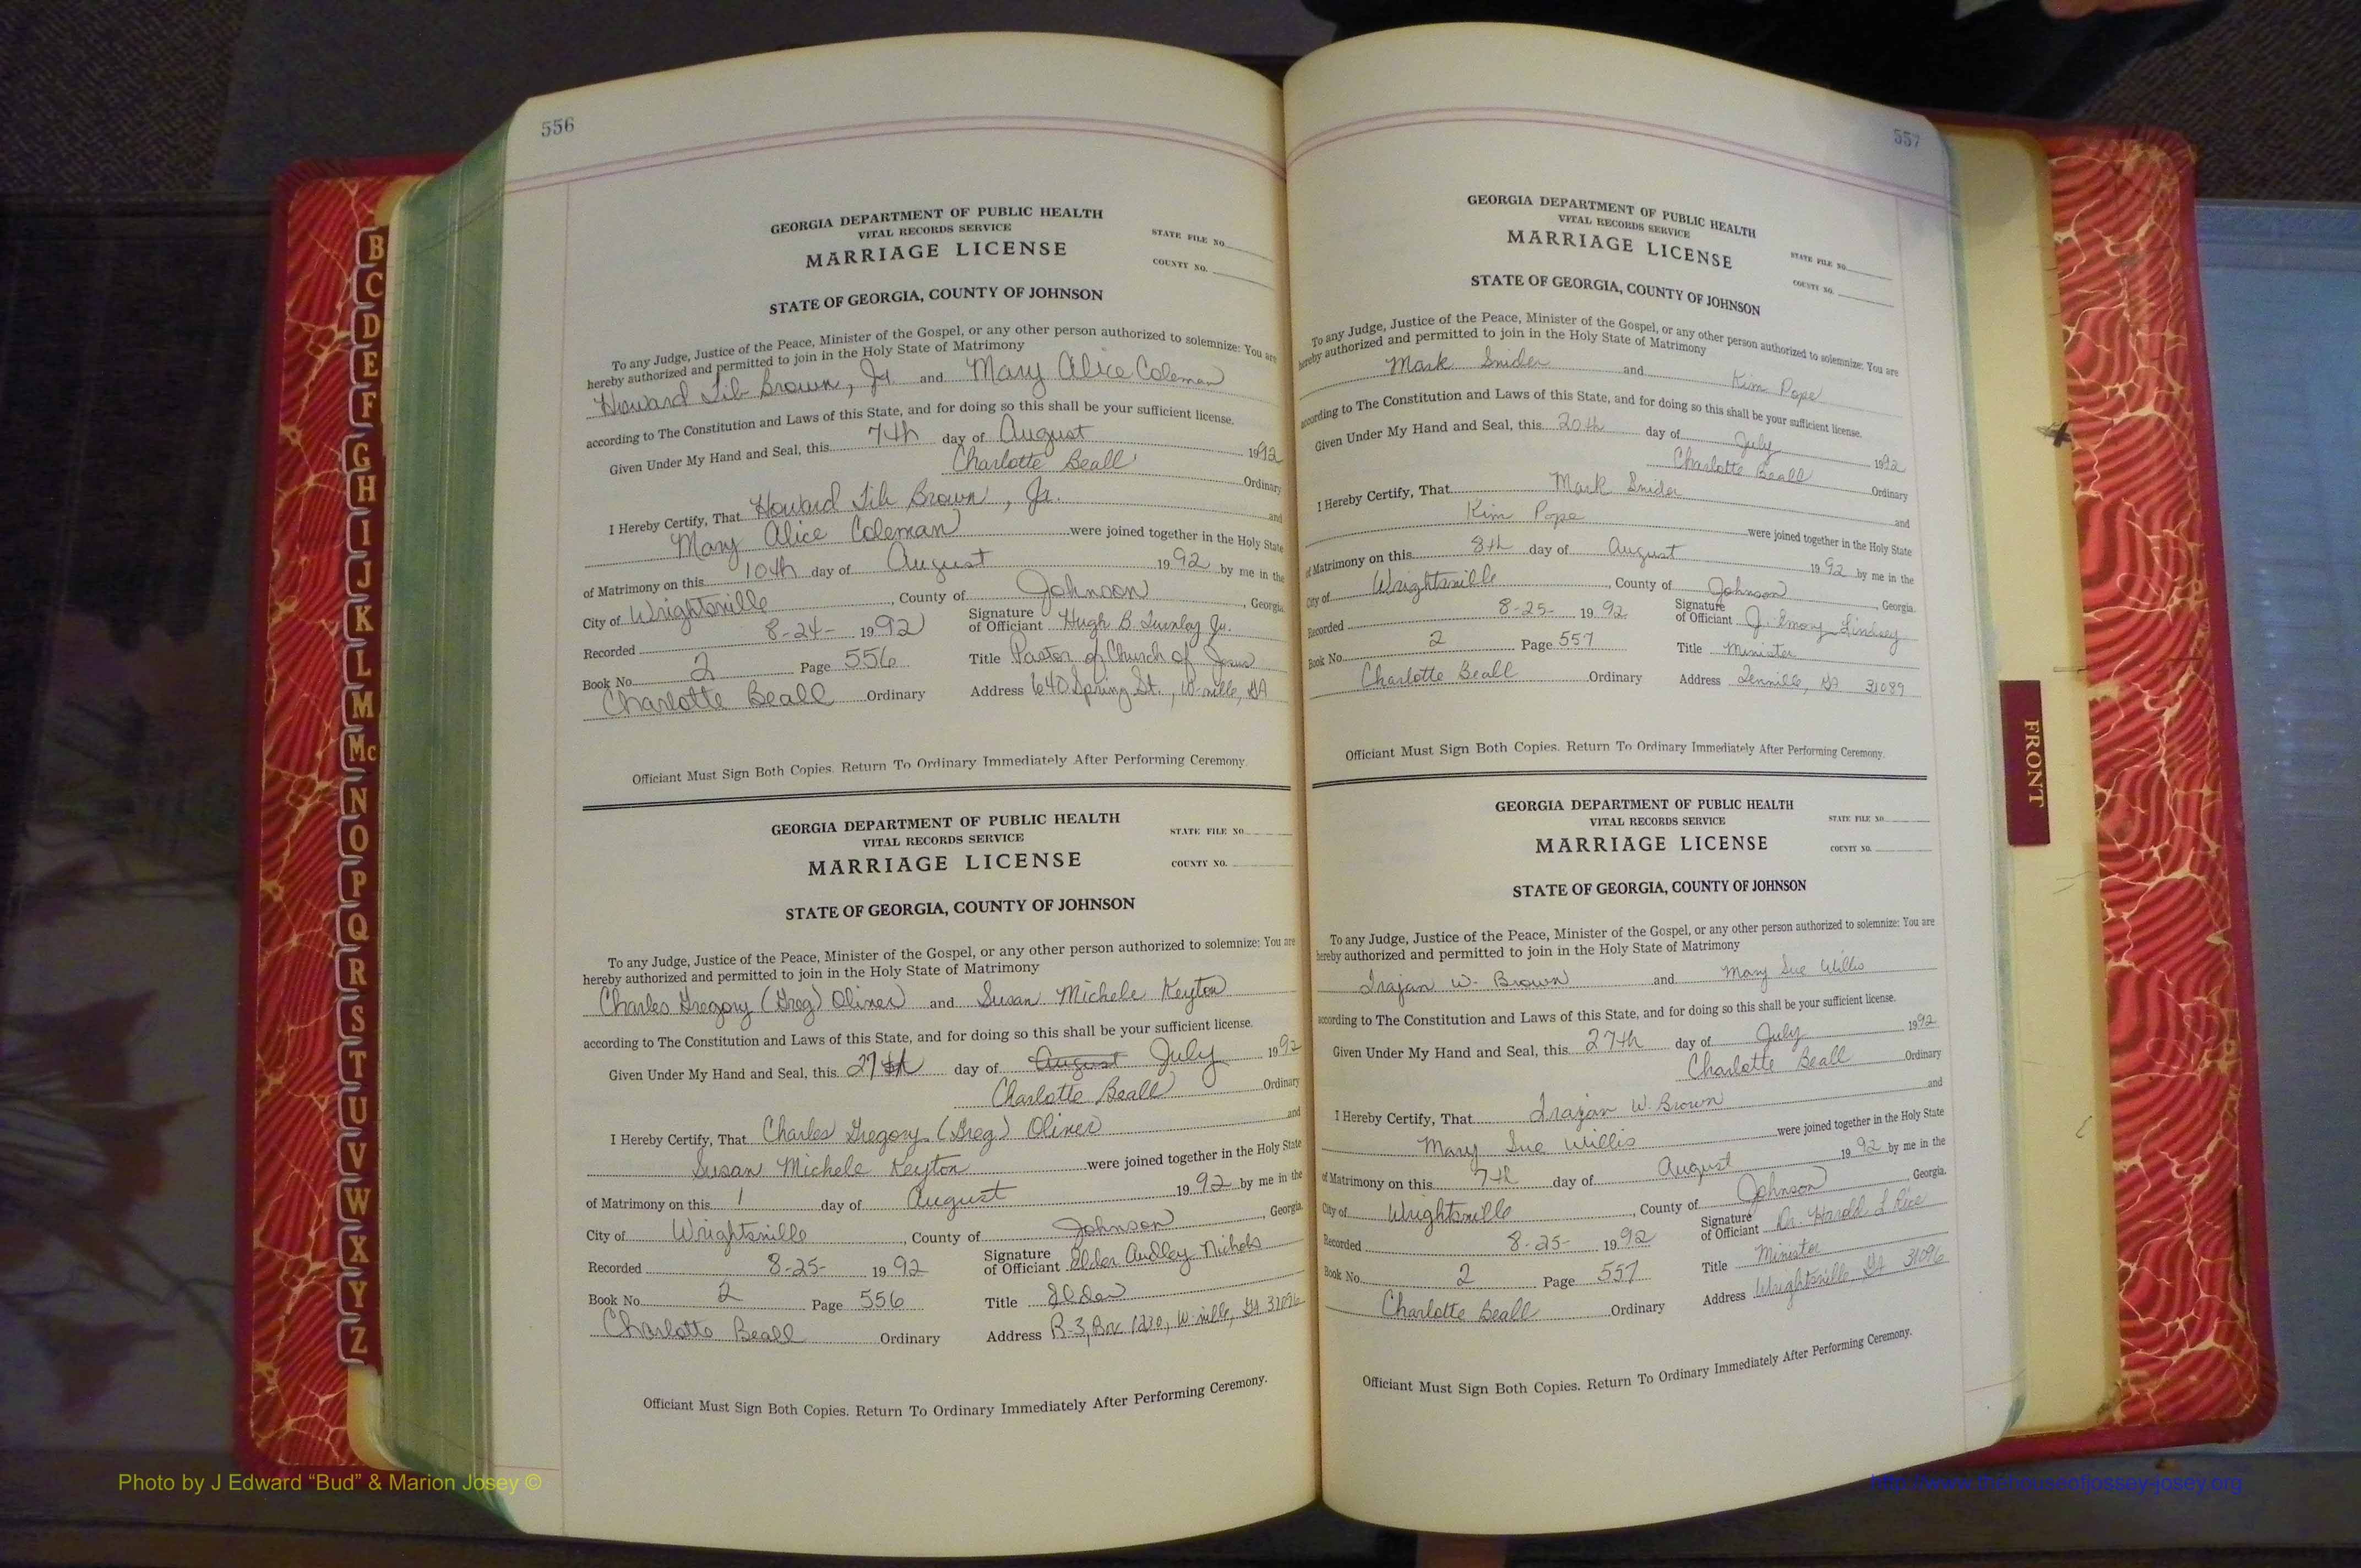 556
GEORGIA DEPARTMENT OF PUBLIC HEALTH
VITAL RECORDS SERVICE
MARRIAGE LICENSE
STATE FILE NO.
COUNTY NO.
STATE OF GEORGIA, COUNTY OF JOHNSON
To any Judge, Justice of the Peace, Minister of the Gospel, or any other person authorized to solemnize: You are
hereby authorized and permitted to join in the Holy State of Matrimony
Howard Tib Brown, Jr. and Mary Alice Coleman
according to The Constitution and Laws of this State, and for doing so this shall be your sufficient license.
Given Under My Hand and Seal, this 7th day of August 1992
Charlotte Beall Ordinary
I Hereby Certify, That Howard Tib Brown, Jr. and
Mary Alice Coleman were joined together in the Holy State
of Matrimony on this 10th day of August 1992 by me in the
City of Wrightsville, County of Johnson, Georgia
Recorded 8-24- 1992 Signature of Officiant Hugh B. Jr.
Book No. 2 Page 556 Title Pastor of Church of Jesus
Charlotte Beall Ordinary Address 640 Spring St., W-ville, GA
Officiant Must Sign Both Copies. Return To Ordinary Immediately After Performing Ceremony.
GEORGIA DEPARTMENT OF PUBLIC HEALTH
VITAL RECORDS SERVICE
MARRIAGE LICENSE
STATE FILE NO.
COUNTY NO.
STATE OF GEORGIA, COUNTY OF JOHNSON
To any Judge, Justice of the Peace, Minister of the Gospel, or any other person authorized to solemnize: You are
hereby authorized and permitted to join in the Holy State of Matrimony
Charles Gregory (Greg) Oliver and Susan Michele Keyton
according to The Constitution and Laws of this State, and for doing so this shall be your sufficient license.
Given Under My Hand and Seal, this 27th day of August July 1992
Charlotte Beall Ordinary
I Hereby Certify, That Charles Gregory (Greg) Oliver and
Susan Michele Keyton were joined together in the Holy State
of Matrimony on this 1 day of August 1992 by me in the
City of Wrightsville, County of Johnson, Georgia.
Recorded 8-25- 1992 Signature of Officiant Elder Audley Nichols
Book No. 2 Page 556 Title Elder
Charlotte Beall Ordinary Address R-3, Box 1230, W-ville, GA 31096
Officiant Must Sign Both Copies. Return To Ordinary Immediately After Performing Ceremony.
557
GEORGIA DEPARTMENT OF PUBLIC HEALTH
VITAL RECORDS SERVICE
MARRIAGE LICENSE
STATE FILE NO.
COUNTY NO.
STATE OF GEORGIA, COUNTY OF JOHNSON
To any Judge, Justice of the Peace, Minister of the Gospel, or any other person authorized to solemnize: You are
hereby authorized and permitted to join in the Holy State of Matrimony
Mark Snider and Kim Pope
according to The Constitution and Laws of this State, and for doing so this shall be your sufficient license.
Given Under My Hand and Seal, this 20th day of July 1992
Charlotte Beall Ordinary
I Hereby Certify, That Mark Snider and
Kim Pope were joined together in the Holy State
of Matrimony on this 8th day of August 1992 by me in the
City of Wrightsville, County of Johnson, Georgia.
Recorded 8-25- 1992 Signature of Officiant J. Emory Lindsey
Book No. 2 Page 557 Title Minister
Charlotte Beall Ordinary Address Tennille, GA 31089
Officiant Must Sign Both Copies. Return To Ordinary Immediately After Performing Ceremony.
GEORGIA DEPARTMENT OF PUBLIC HEALTH
VITAL RECORDS SERVICE
MARRIAGE LICENSE
STATE FILE NO.
COUNTY NO.
STATE OF GEORGIA, COUNTY OF JOHNSON
To any Judge, Justice of the Peace, Minister of the Gospel, or any other person authorized to solemnize: You are
hereby authorized and permitted to join in the Holy State of Matrimony
Trajan W. Brown and Mary Sue Willis
according to The Constitution and Laws of this State, and for doing so this shall be your sufficient license.
Given Under My Hand and Seal, this 27th day of July 1992
Charlotte Beall Ordinary
I Hereby Certify, That Trajan W. Brown and
Mary Sue Willis were joined together in the Holy State
of Matrimony on this 7th day of August 1992 by me in the
City of Wrightsville, County of Johnson, Georgia.
Recorded 8-25- 1992 Signature of Officiant Dr. Harold L Rice
Book No. 2 Page 557 Title Minister
Charlotte Beall Ordinary Address Wrightsville, GA 31096
Officiant Must Sign Both Copies. Return To Ordinary Immediately After Performing Ceremony.
B
C
D
E
F
G
H
I
J
K
L
M
Mc
N
O
P
Q
R
S
T
U
V
W
X
Y
Z
FRONT
Photo by J Edward “Bud” & Marion Josey ©
http://www.thehouseofjossey-josey.org